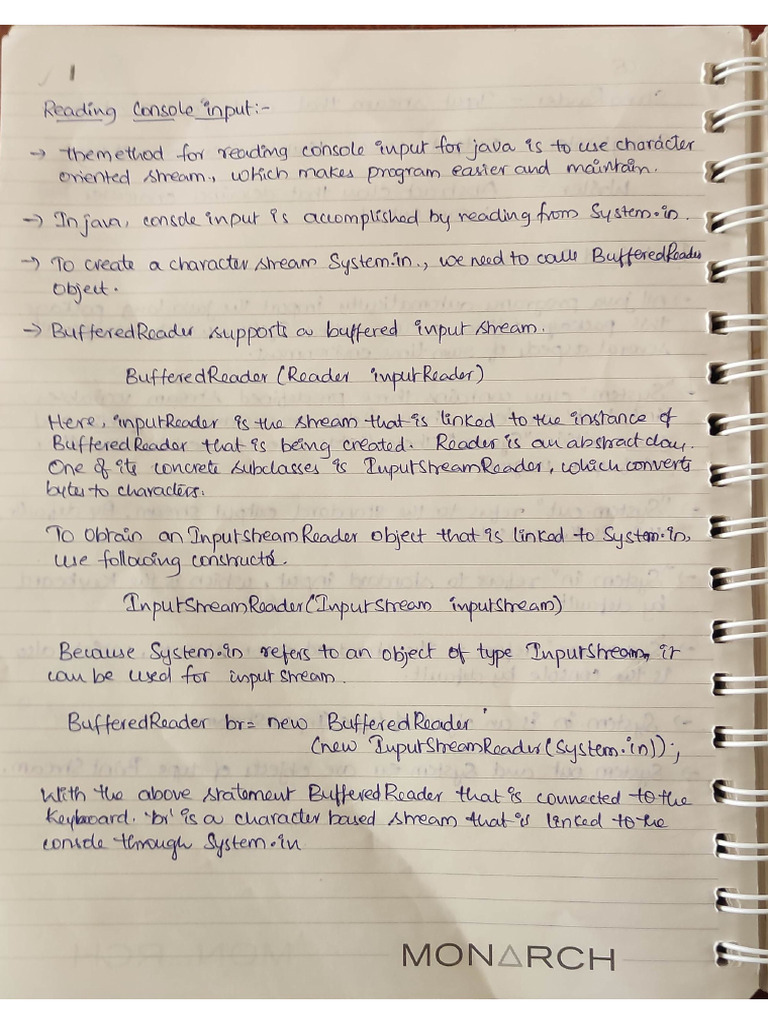 1
Reading Console input:-
→ themethod for reading console input for java is to use character
oriented stream., which makes program easier and maintain.
→ In java, console input is accomplished by reading from System.in.
→ To create a character stream System.in., we need to call BufferedReader
object.
→ BufferedReader supports a buffered input stream.
BufferedReader (Reader inputReader)
Here, inputReader is the stream that is linked to the instance of
BufferedReader that is being created. Reader is an abstract class.
One of its concrete subclasses is InputStreamReader, which converts
bytes to characters.
To obtain an InputstreamReader object that is linked to System.in,
use following constructor.
InputStreamReader(InputStream inputstream)
Because System.in refers to an object of type InputStream, it
can be used for input stream.
BufferedReader br= new BufferedReader
(new InputStreamReader(System.in));
With the above statement BufferedReader that is connected to the
Keyboard. 'br' is a character based stream that is linked to the
console through System.in
MONARCH